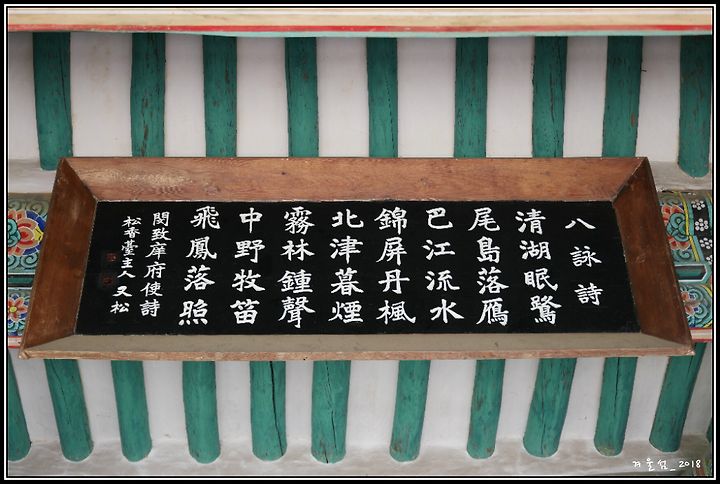 八詠詩
清湖眠鷺
尾島落鴈
巴江流水
錦屏丹楓
北津暮煙
霧林鍾聲
中野牧笛
飛鳳落照
閔致庠府使詩
松香臺主人又松
겨울섬_2018